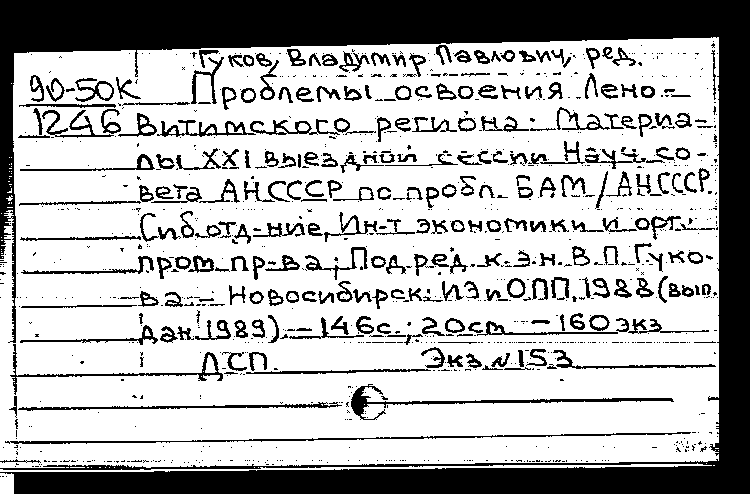 Гуков, Владимир Павлович, ред.
90-50К Проблемы освоения Лено-
1246 Витимского региона: Материа-
лы XXI выездной сессии Науч. со-
вета АН СССР по пробл. БАМ / АН СССР.
Сиб. отд-ние, Ин-т экономики и орг.
пром. пр-ва; Под ред. к.э.н. В.П. Гуко-
ва. – Новосибирск: ИЭиОПП, 1988 (вып.
дан. 1989). – 146с.; 20см – 160 экз
ДСП. Экз. № 153